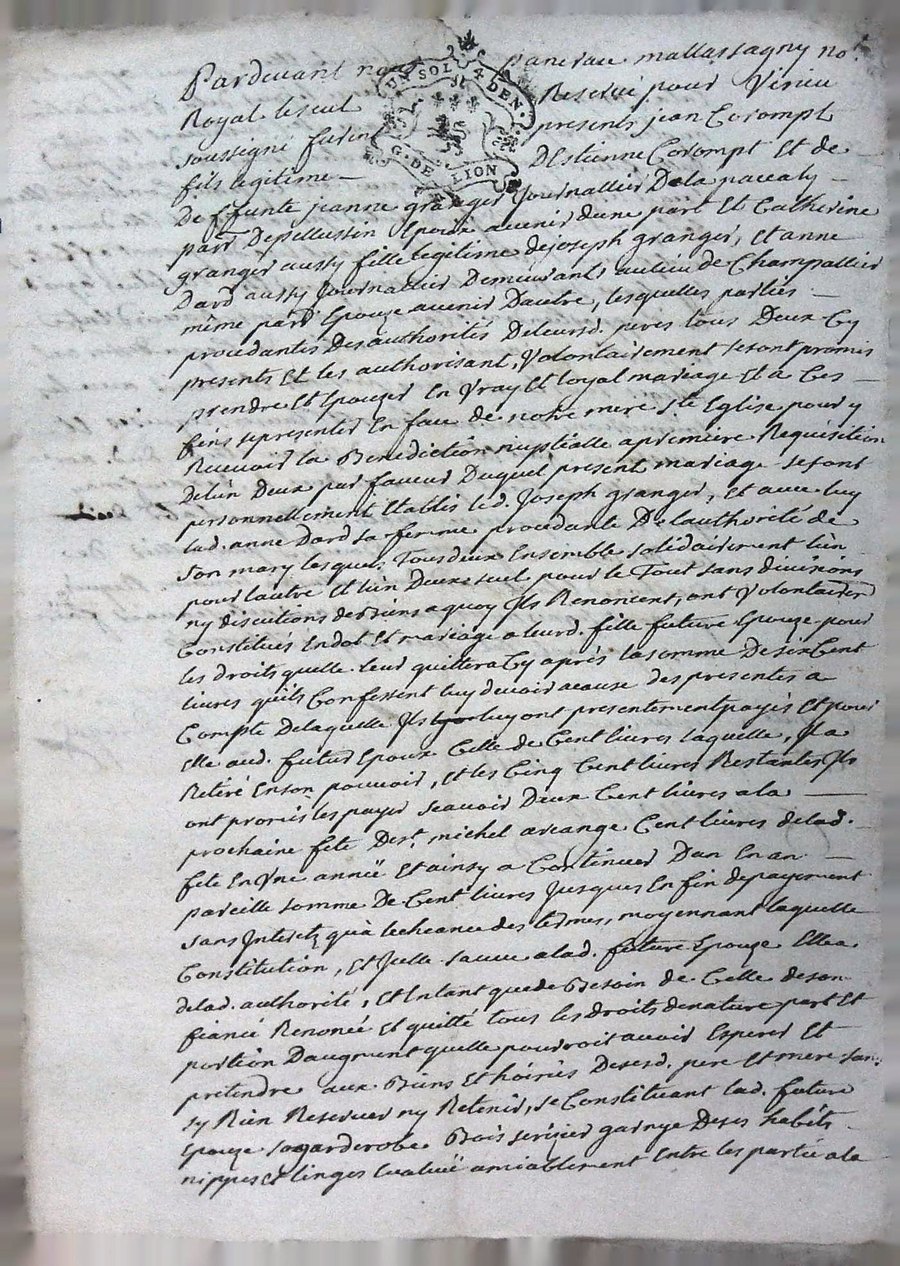 UN SOL 4 DEN.
G. DE LION
Pardevant nous pancrace mallassagny no.re
Royal le seul Reservé pour Virieu
soussigné furent presents jean Corompt
fils legitime D'Estienne Corompt Et de
Deffunte jeanne granger Journallier Dela
parr. Depellussin Epoux avenir dune part Et Catherine
granger aussy fille legitime de joseph granger, Et anne
Dard aussy Journallier Demeurants au lieu de Champallier
même parr. Epouze avenir Dautre, lesquelles parties
procedantes Des authorités De leursd. peres tous Deux Cy
presents Et les authorisant, Volontairement se sont promis
prendre Et Epouzer En Vray Et loyal mariage Et a Ces
fins se presenter En face de notre mere S.te Eglise pour y
Recevoir la Benediction nuptialle a premiere Requisition
De lun Deux par faveur Duquel present mariage se sont
personnellement Etablis led. Joseph granger, Et avec luy
lad. anne Dard sa femme procedante De lauthorité de
son mary lesquels Tous deux Ensemble solidairement lun
pour lautre Et lun Deux seul pour le Tout sans divisions
ny discutions de Biens a quoy Ils Renoncent, ont Volontairem.
Constitués En dot Et mariage a leurd. fille future Epouze pour
les droits quelle leur quittera Cy après la somme De six Cent
livres quils Confessent luy devoir a cause des presentes a
Compte De laquelle Ils luy ont presentement payés Et pour
Elle aud. futur Epoux Celle de Cent livres laquelle, Il a
Retiré En son pouvoir, Et les Cinq Cent livres Restantes Ils
ont promis les payer scavoir Deux Cent livres a la
prochaine fete De st. michel arcange Cent livres de lad.
fete En Une année Et ainsy a Continuer Dan En an
pareille somme De Cent livres Jusques En fin de payement
sans Interets qua lecheance des termes, moyennant laquelle
Constitution, Et Icelle sauve a lad. future Epouze Elle a
de lad. authorité, Et En tant que de Besoin de Celle de son
fiancé Renoncé Et quitté tous les Droits de nature part Et
portion Daugment quelle pourroit avoir Esperer Et
pretendre aux Biens Et hoiries De sesd. pere Et mere sans
sy Rien Reserver ny Retenir, se Constituant lad. future
Epouze sa garderobe Bois serizier garnye De ses habits
nippes Et linges Evalué amiablement Entre les parties a la